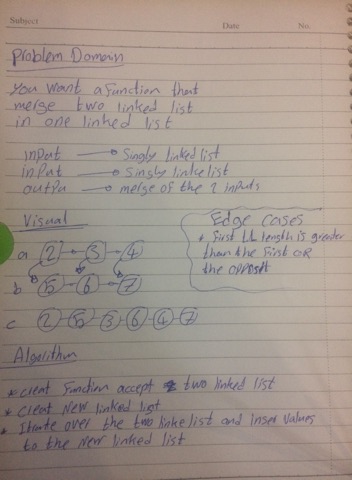 Subject Date No.
Problem Domain
You Want a function that
merge two linked list
in one linked list
input singly linked list
input singly linke list
outpu merge of the 2 inputs
Visual
a 2 3 4
b 5 6 7
c 2 5 3 6 4 7
Edge Cases
* First LL length is greater
than the First or
the opposit
Algorithm
* creat Function accept two linked list
* Creat New linked list
* Itrate over the two linke list and inser values
to the New linked list